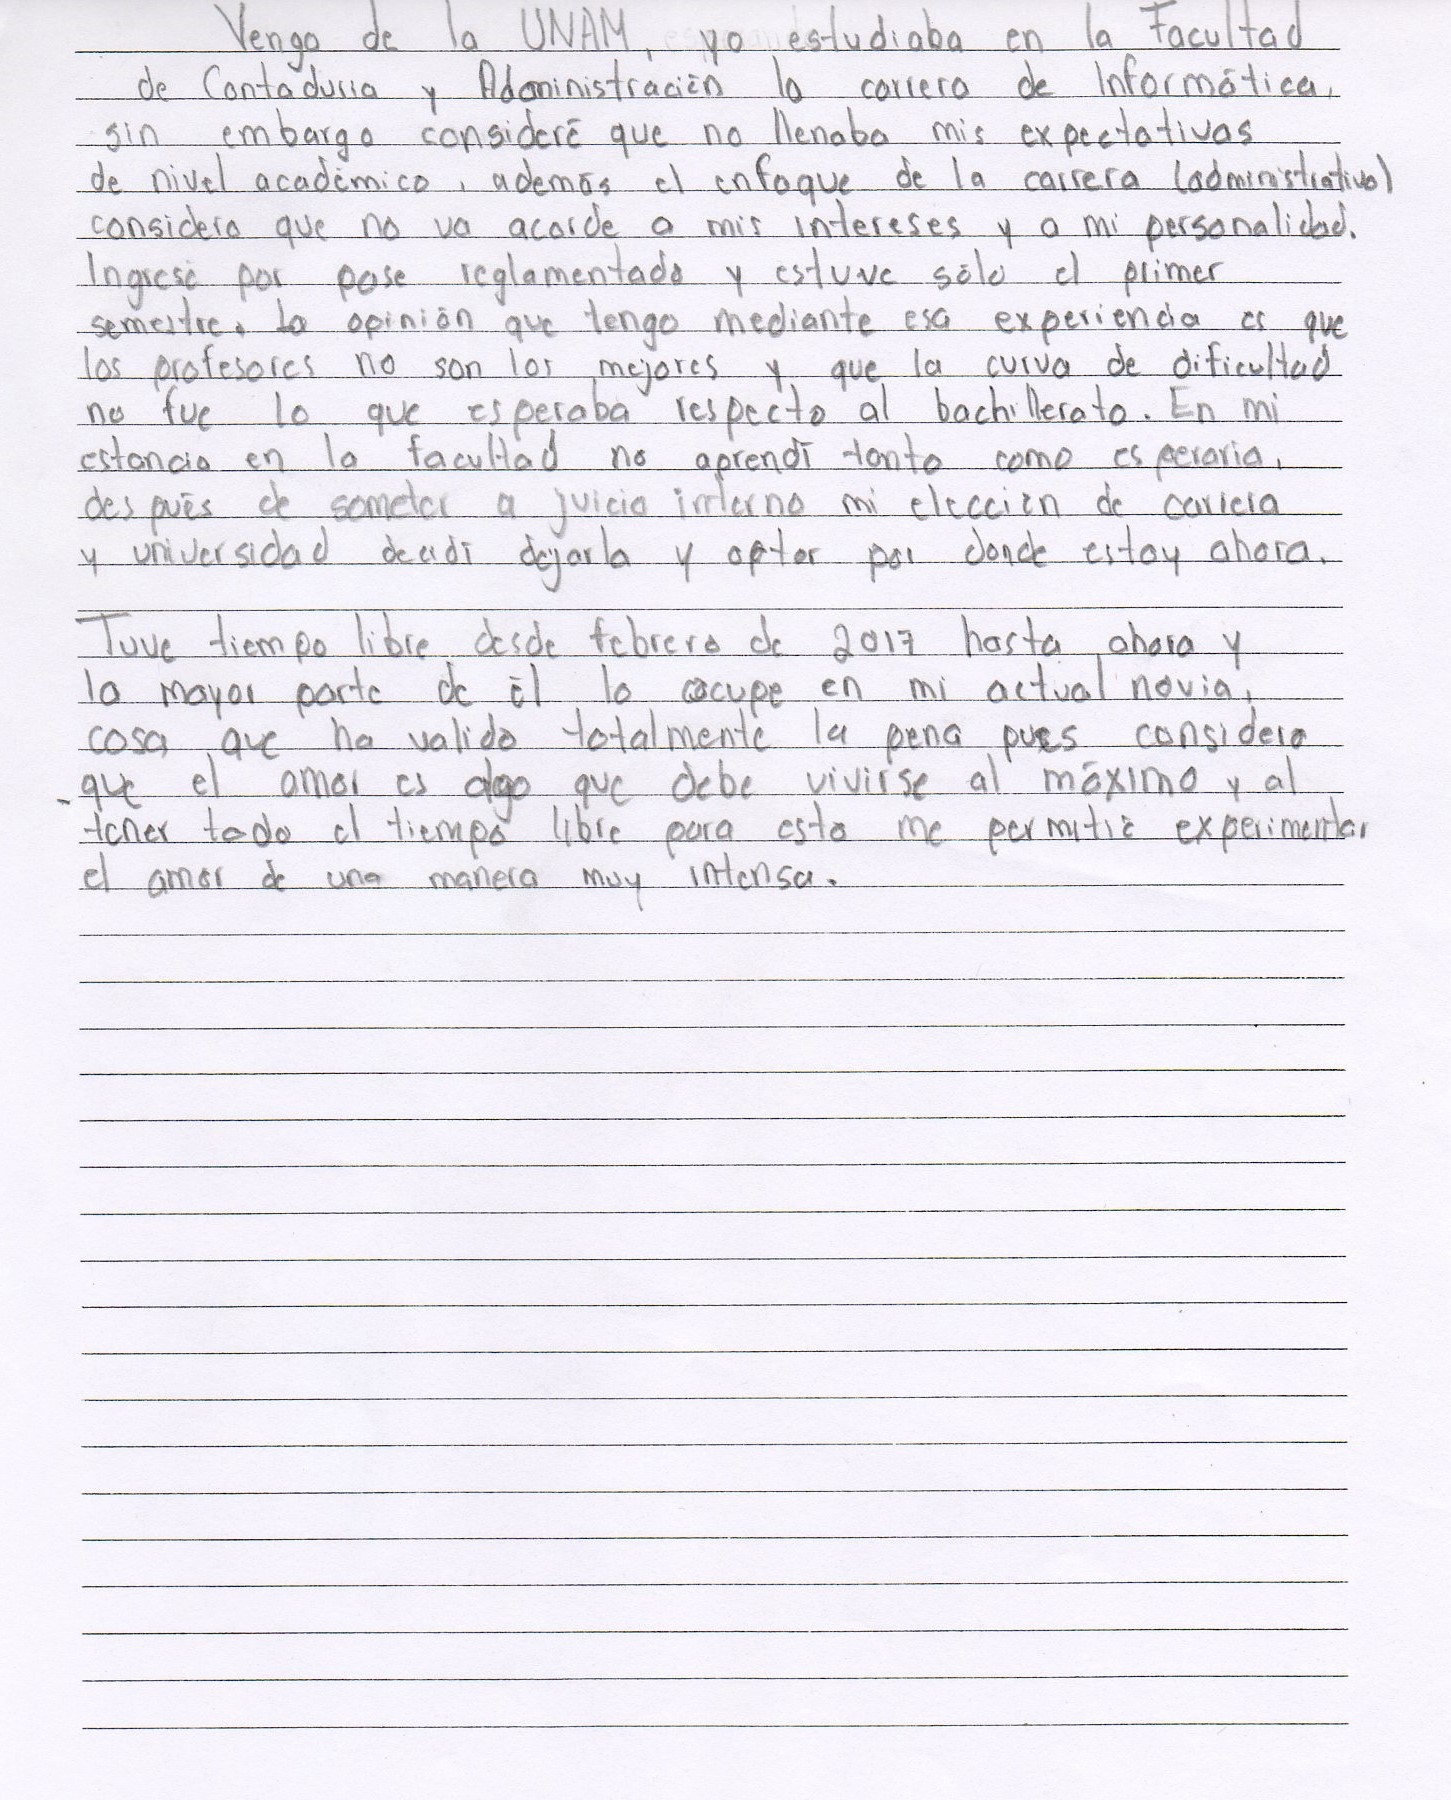 Vengo de la UNAM, yo estudiaba en la Facultad
de Contaduria y Administración la carrera de Informática,
sin embargo consideré que no llenaba mis expectativas
de nivel académico, además el enfoque de la carrera (administrativo)
considero que no va acorde a mis intereses y a mi personalidad.
Ingresé por pase reglamentado y estuve sólo el primer
semestre. La opinión que tengo mediante esa experiencia es que
los profesores no son los mejores y que la curva de dificultad
no fue lo que esperaba respecto al bachillerato. En mi
estancia en la facultad no aprendí tanto como esperaria,
después de someter a juicio interno mi elección de carrera
y universidad decidí dejarla y optar por donde estoy ahora.
Tuve tiempo libre desde febrero de 2017 hasta ahora y
la mayor parte de él lo ocupe en mi actual novia,
cosa que ha valido totalmente la pena pues considero
que el amor es algo que debe vivirse al máximo y al
tener todo el tiempo libre para esto me permitió experimentar
el amor de una manera muy intensa.